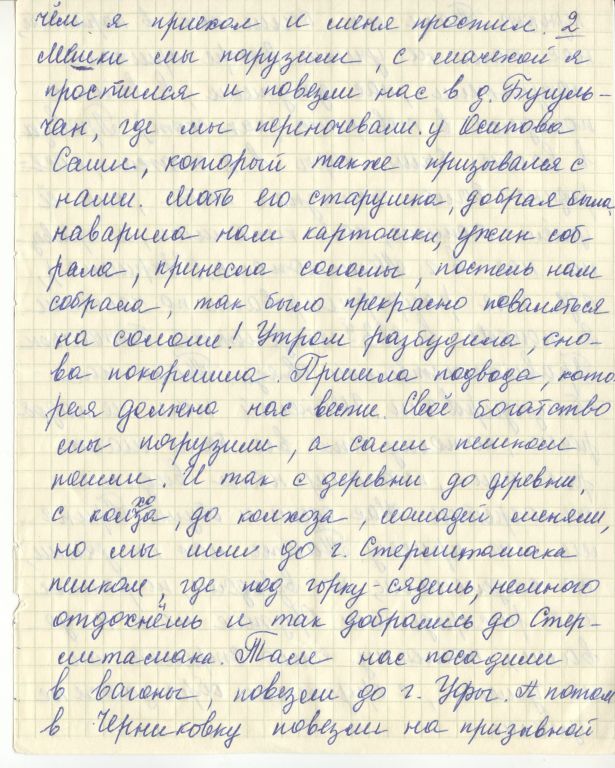 чём я приехал и меня простил. 2
Мешки мы погрузили, с мачехой я
простился и повезли нас в д. Бугуль-
чан, где мы переночевали у Осипова
Саши, который также призывался с
нами. Мать его старушка, добрая была,
наварила нам картошки, ужин соб-
рала, принесла соломы, постель нам
собрала, так было прекрасно поваляться
на соломе! Утром разбудила, сно-
ва покормила. Пришла подвода, кото
рая должна нас вести. Своё богатство
мы погрузили, а сами пешком
пошли. И так с деревни, до деревни,
с колхоза, до колхоза, лошадей меняли,
но мы шли до г. Стерлитамака
пешком, где под горку-сядешь, немного
отдохнёшь и так добрались до Стер-
литамака. Там нас посадили
в вагоны, повезли до г. Уфы. А потом
в Черниковку повезли на призывной